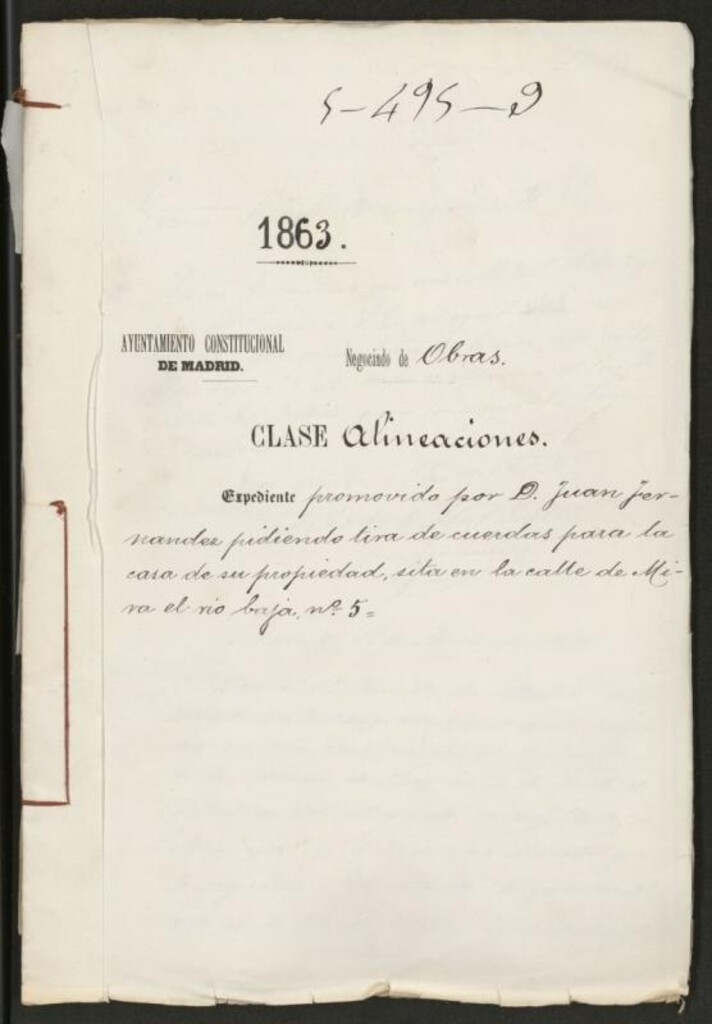 5-495-9
1863.
AYUNTAMIENTO CONSTITUCIONAL
DE MADRID.
Negociado de Obras.
CLASE Alineaciones.
Expediente promovido por D. Juan Fer-
nandez pidiendo tira de cuerdas para la
casa de su propiedad, sita en la calle de Mi-
ra el rio baja, nº 5=